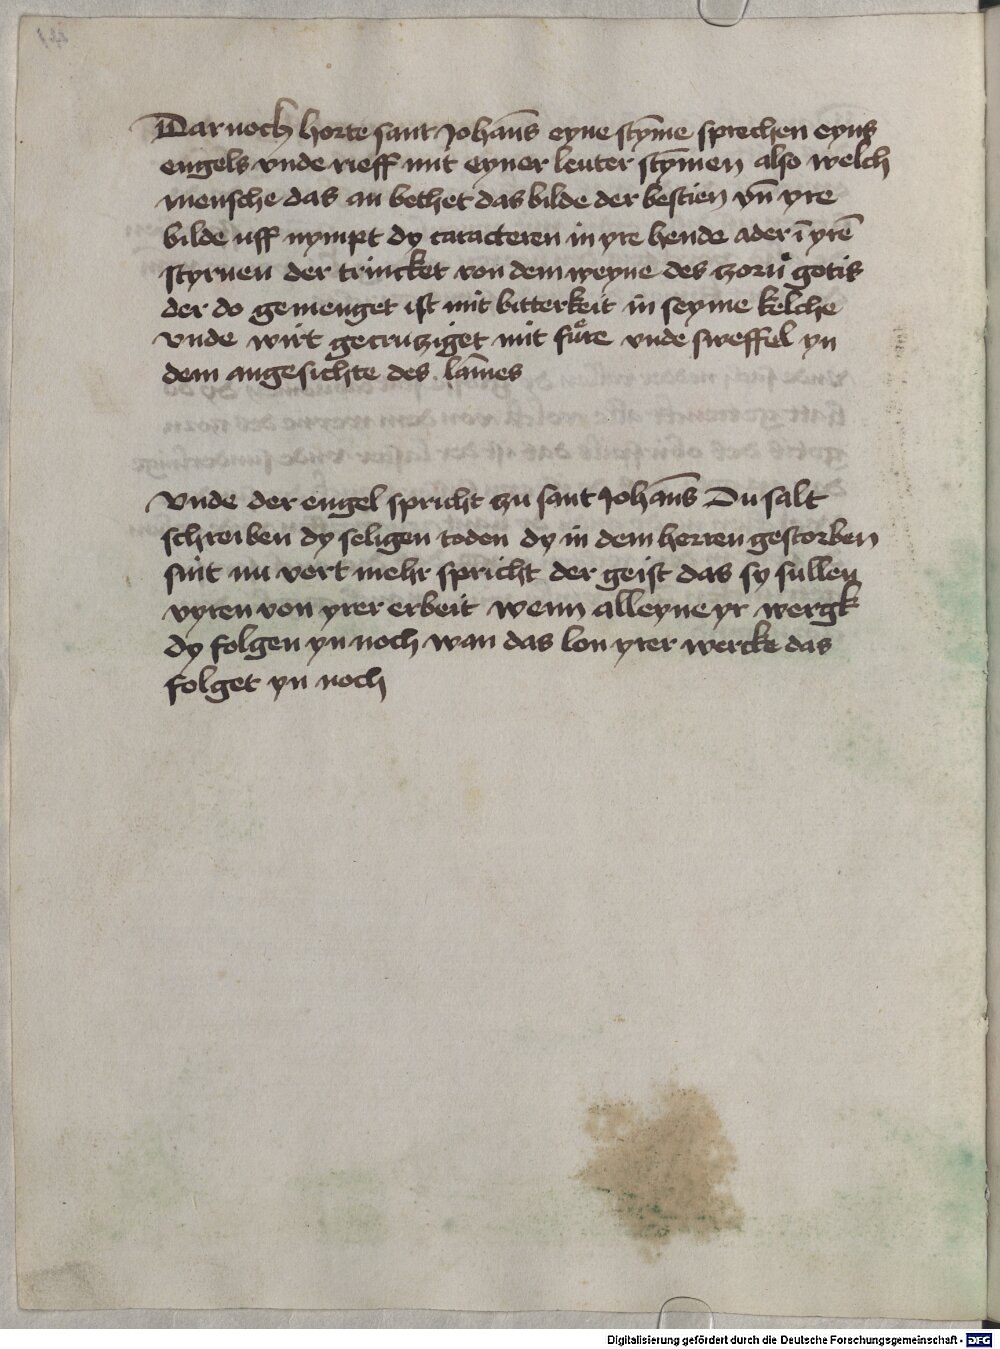 Darnoch horte sant Johan̄s eyne stȳme sprechen eyns
engels vnde rieff mit eyner leuter stȳmen also welch
mensche das an bethet das bilde der bestien vn̄ yre
bilde uff nympt dy caracteren in yre hende ader ī yrē
styrnen der trincket von dem weyne des zornˢ gotis
der do gemenget ist mit bitterkeit in seyme kelche
vnde wirt gecruziget mit fůre vnde sweffel yn
dem angesichte des lām̄es
Vnde der engel spricht zu sant Johan̄s Du salt
schreiben dy seligen toden dy in dem herren gestorben
sint nu vort mehr spricht der geist das sy sullen
vyren von yrer erbeit wenn alleyne yr wergk
dy folgen yn noch wan das lon yrer wercke das
folget yn noch
Digitalisierung gefördert durch die Deutsche Forschungsgemeinschaft - DFG